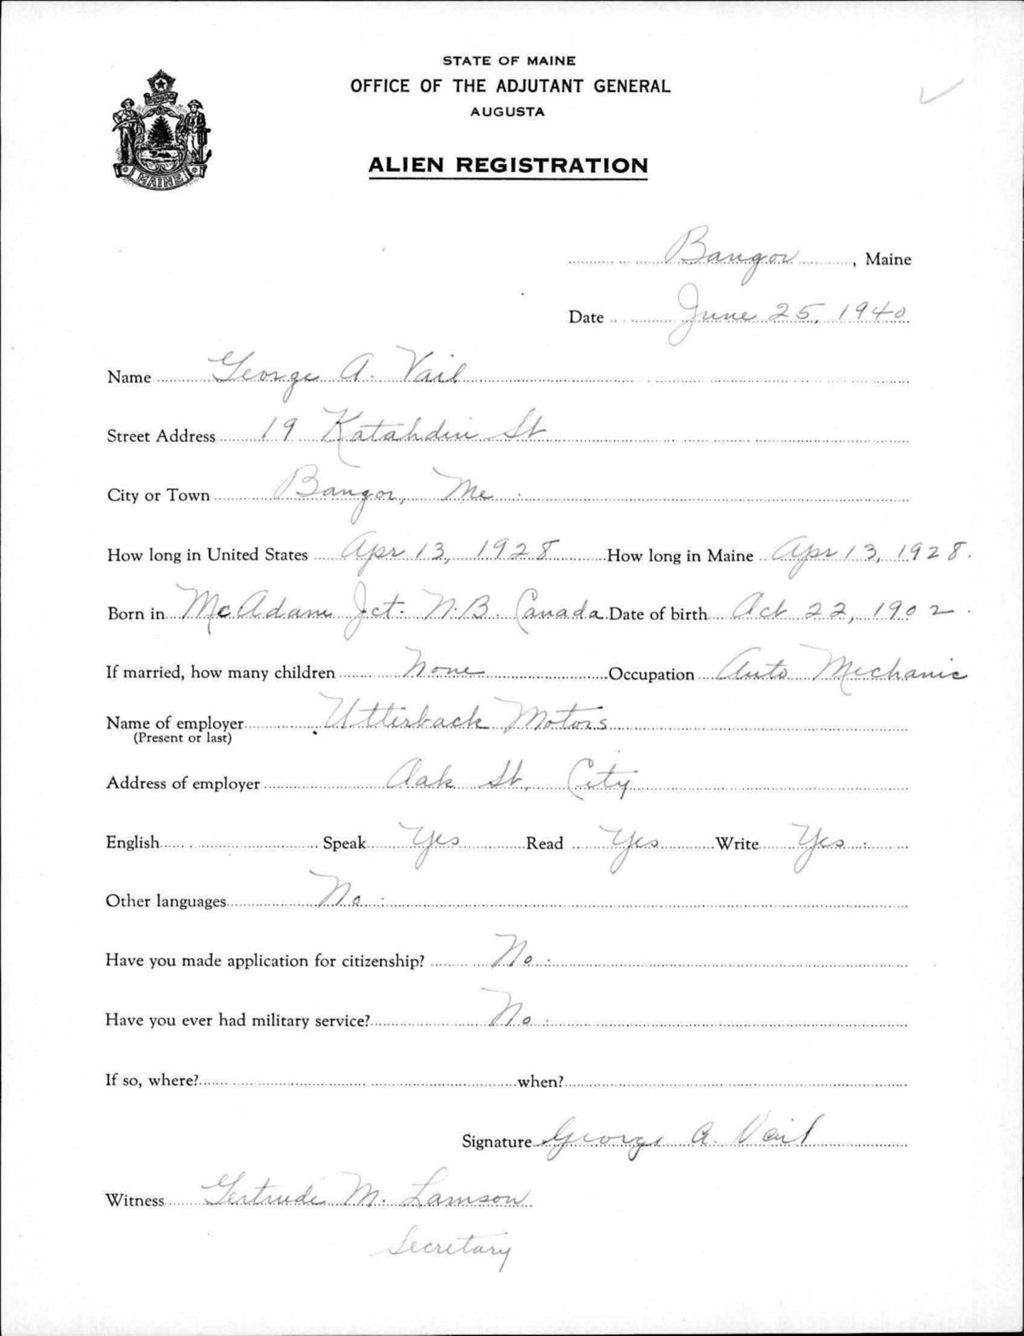 STATE OF MAINE
OFFICE OF THE ADJUTANT GENERAL
AUGUSTA
ALIEN REGISTRATION
MAINE
Bangor, Maine
Date June 25, 1940
Name George A. Vail
Street Address 19 Katahdin St
City or Town Bangor, Me.
How long in United States Apr 13, 1928 How long in Maine Apr 13, 1928.
Born in McAdam Jct. N.B. Canada Date of birth Oct 22, 1902.
If married, how many children None Occupation Auto Mechanic
Name of employer Utterback Motors
(Present or last)
Address of employer Oak St, City
English Speak Yes Read Yes Write Yes.
Other languages No.
Have you made application for citizenship? No.
Have you ever had military service? No.
If so, where? when?
Signature George A. Vail
Witness Gertrude M. Lamson
Secretary